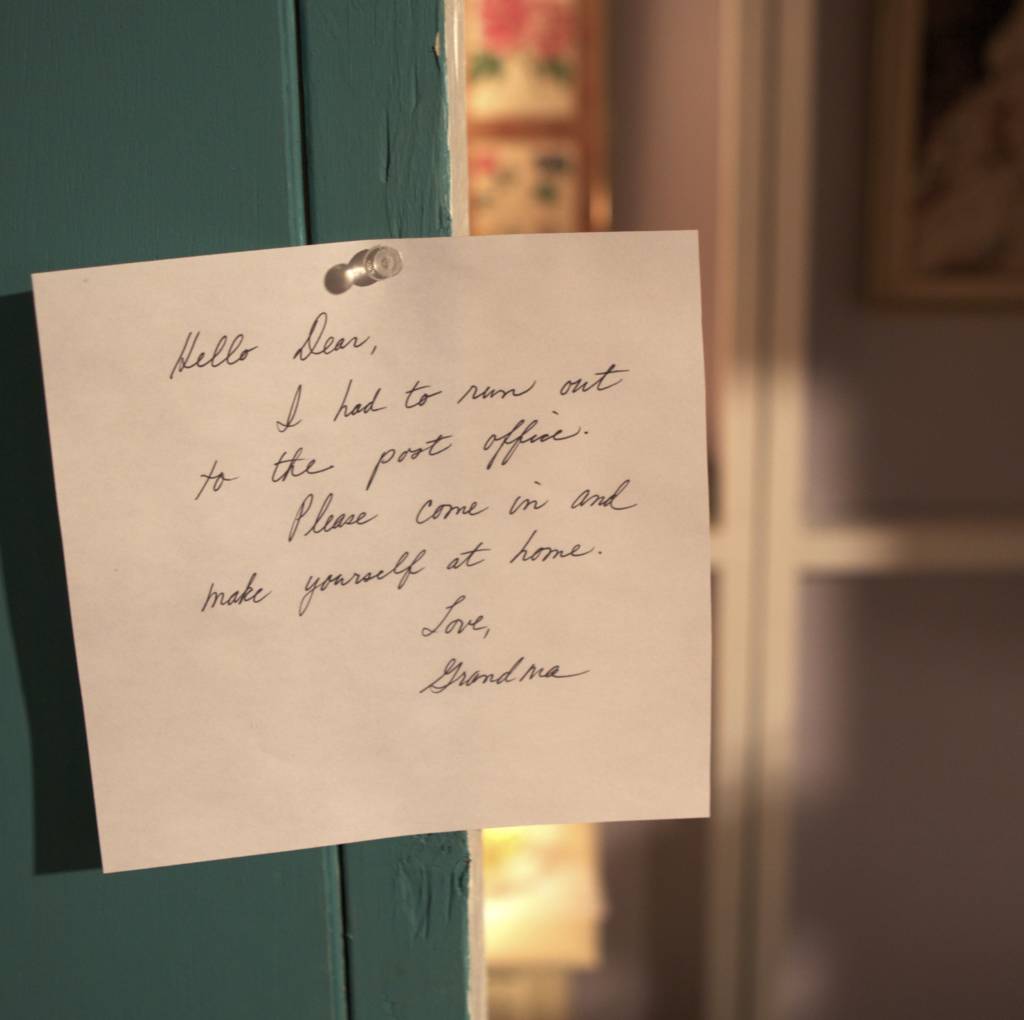 Hello Dear,
I had to run out
to the post office.
Please come in and
make yourself at home.
Love,
Grandma